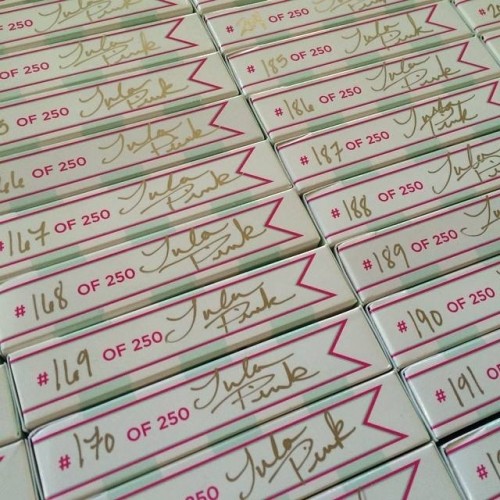 OF 250
OF 250
OF 250 Tula Pink
OF 250 Tula Pink
66 OF 250 Tula Pink
#167 OF 250 Tula Pink
#168 OF 250 Tula Pink
#169 OF 250 Tula Pink
#170 OF 250 Tula Pink
OF 250 Tula Pink
OF 250
# OF 250 Tula Pink
#185 OF 250 Tula Pink
#186 OF 250 Tula Pink
#187 OF 250 Tula Pink
#188 OF 250 Tula Pink
#189 OF 250
#190 OF 250
#191 OF